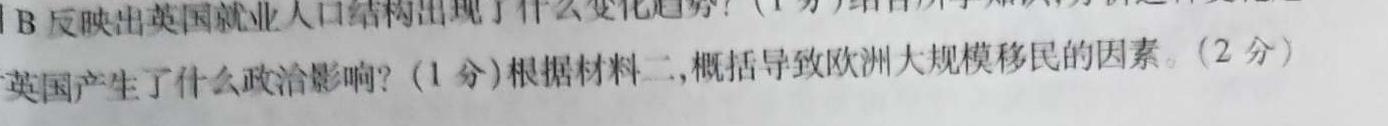 B 反映出英国就业人口结构出现了什么变化趋势？(1 分)结合所学知识,分析这种变化
英国产生了什么政治影响？(1 分)根据材料二,概括导致欧洲大规模移民的因素。(2 分)